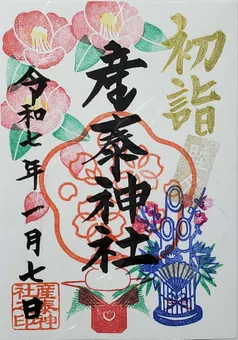 初詣
産泰神社
令和七年一月七日
産泰神
社印